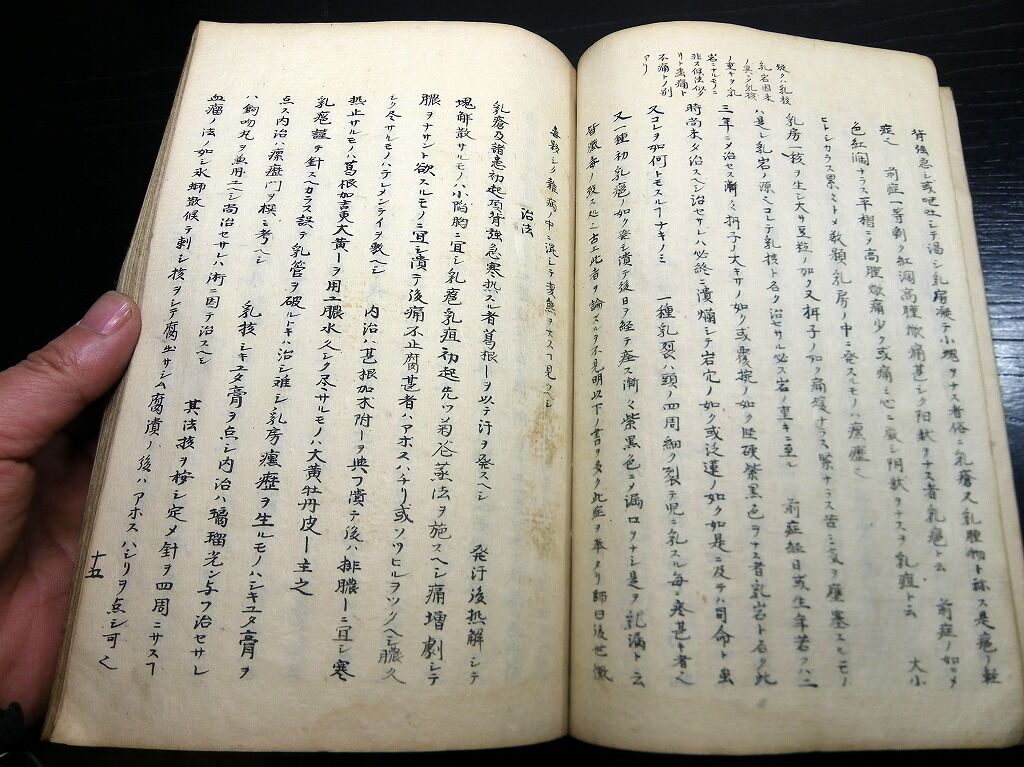 背強急シ或吐シテ渇シ乳房凝テ小塊ヲナス者俗ニ乳瘡又乳腫物ト称ス是疽ノ軽
症也 前症一等劇ク紅潤高腫焮痛甚シク陽状ヲナス者乳癰ト云 前症ノ如ニメ
色紅潤ナラス平榻ニメ高腫焮痛少ク或痛ミ心ニ徹シ陰状ヲナスヲ乳疽ト云 大小
ヒトシカラス累々トメ数顆乳房ノ中ニ発スルモノハ瘰癧也
乳房一核ヲ生シ大サ豆粒ノ如ク又杯子ノ如ク痛緩ナラス緊ナラス苦ミ気ヲ壅塞スルモノ
ハ是レ乳岩ノ源也コレヲ乳核ト名ク治セサル必ス岩ノ重キニ至ル 前症経日或生年若クハ二
三年ニメ治セス漸々杯子ノ大キサノ如ク或覆椀ノ如ク堅硬紫黒色ヲナス者乳岩ト名ク此
時尚未タ治スヘシ治セサレハ必終ニ潰爛シテ岩穴ノ如ク或泛蓮ノ如ク如是ニ及テハ司命ト虽
又コレヲ如何トモスルナキノミ 一種乳裂ハ頭ノ四周細ク裂テ児ニ乳スル毎ニ寒甚キ者也
又一種初乳癰ノ如ク発シ潰テ後日ヲ経テ癒ス漸々紫黒色ニメ漏口ヲナシ是ヲ乳漏ト云
皆黴毒ノ致ス処ニ古エ此者ヲ論スルヲ不見明以下ノ書ヲ多ク此症ヲ挙タリ師曰後世黴
疑クハ乳核
乳岩因未
ノ異ヘシ乳核
ノ重キヲ乳
岩ニナルモノニ
非ス似法似タ
リト虽痛ト
不痛トノ別
アリ
毒夥シク雜病ノ中ニ混シテ曳無ヲナスヲ見ツヘシ
治法
乳瘡及諸患初起項背強急寒熱スル者葛根一ヲ以テ汗ヲ発スヘシ 発汗後熱解シテ
塊解散サルモノハ小陥胸ニ宜シ乳癰乳疽初起先ツ菊花蒸法ヲ施スヘシ痛増劇シテ
膿ヲナサント欲スルモノニ宜シ潰テ後痛不止腐甚者ハアホスハチリ或ソツヒルヲツクヘシ膿久
シク尽サルモノハテレメンテイヲ裹ヘシ 内治ハ甚根加朮附一ヲ與フ潰テ後ハ排膿一ニ宜シ寒
熱止サルモノハ葛根加吉更大黄一ヲ用ユ膿水久シク尽サルモノハ大黄牡丹皮一主之
乳癰謹テ針スヘカラス誤テ乳管ヲ破ルトキハ治シ難シ乳房瘰癧ヲ生ルモノハシキユタ膏ヲ
点ス内治ハ瘰癧門ヲ模シ考ヘシ 乳核シキユタ膏ヲ点シ内治ハ瑠璃光シ与フ治セサレ
ハ飼吻丸ヲ兼用ユヘシ尚治セサレハ術ニ因テ治スヘシ 其法核ヲ按シ定メ針ヲ四周ニサスフ
血瘤ノ法ノ如シ水蛭散候テ刺シ核ヲシテ腐出サシム腐潰ノ後ハアホスハシリヲ点シ可也
十五